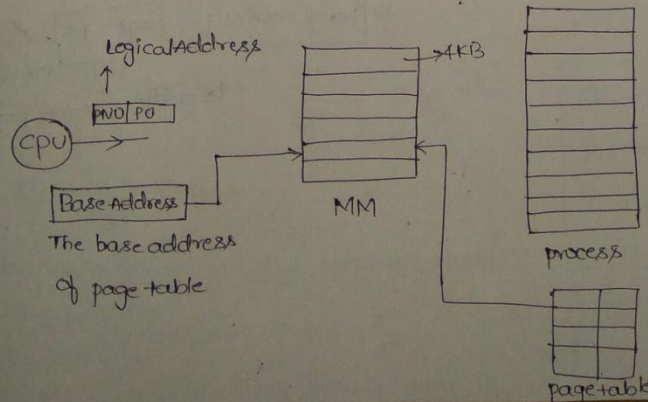 Logical Address
PNO PO
CPU
4KB
Base Address
MM
The base address
of page table
process
page table